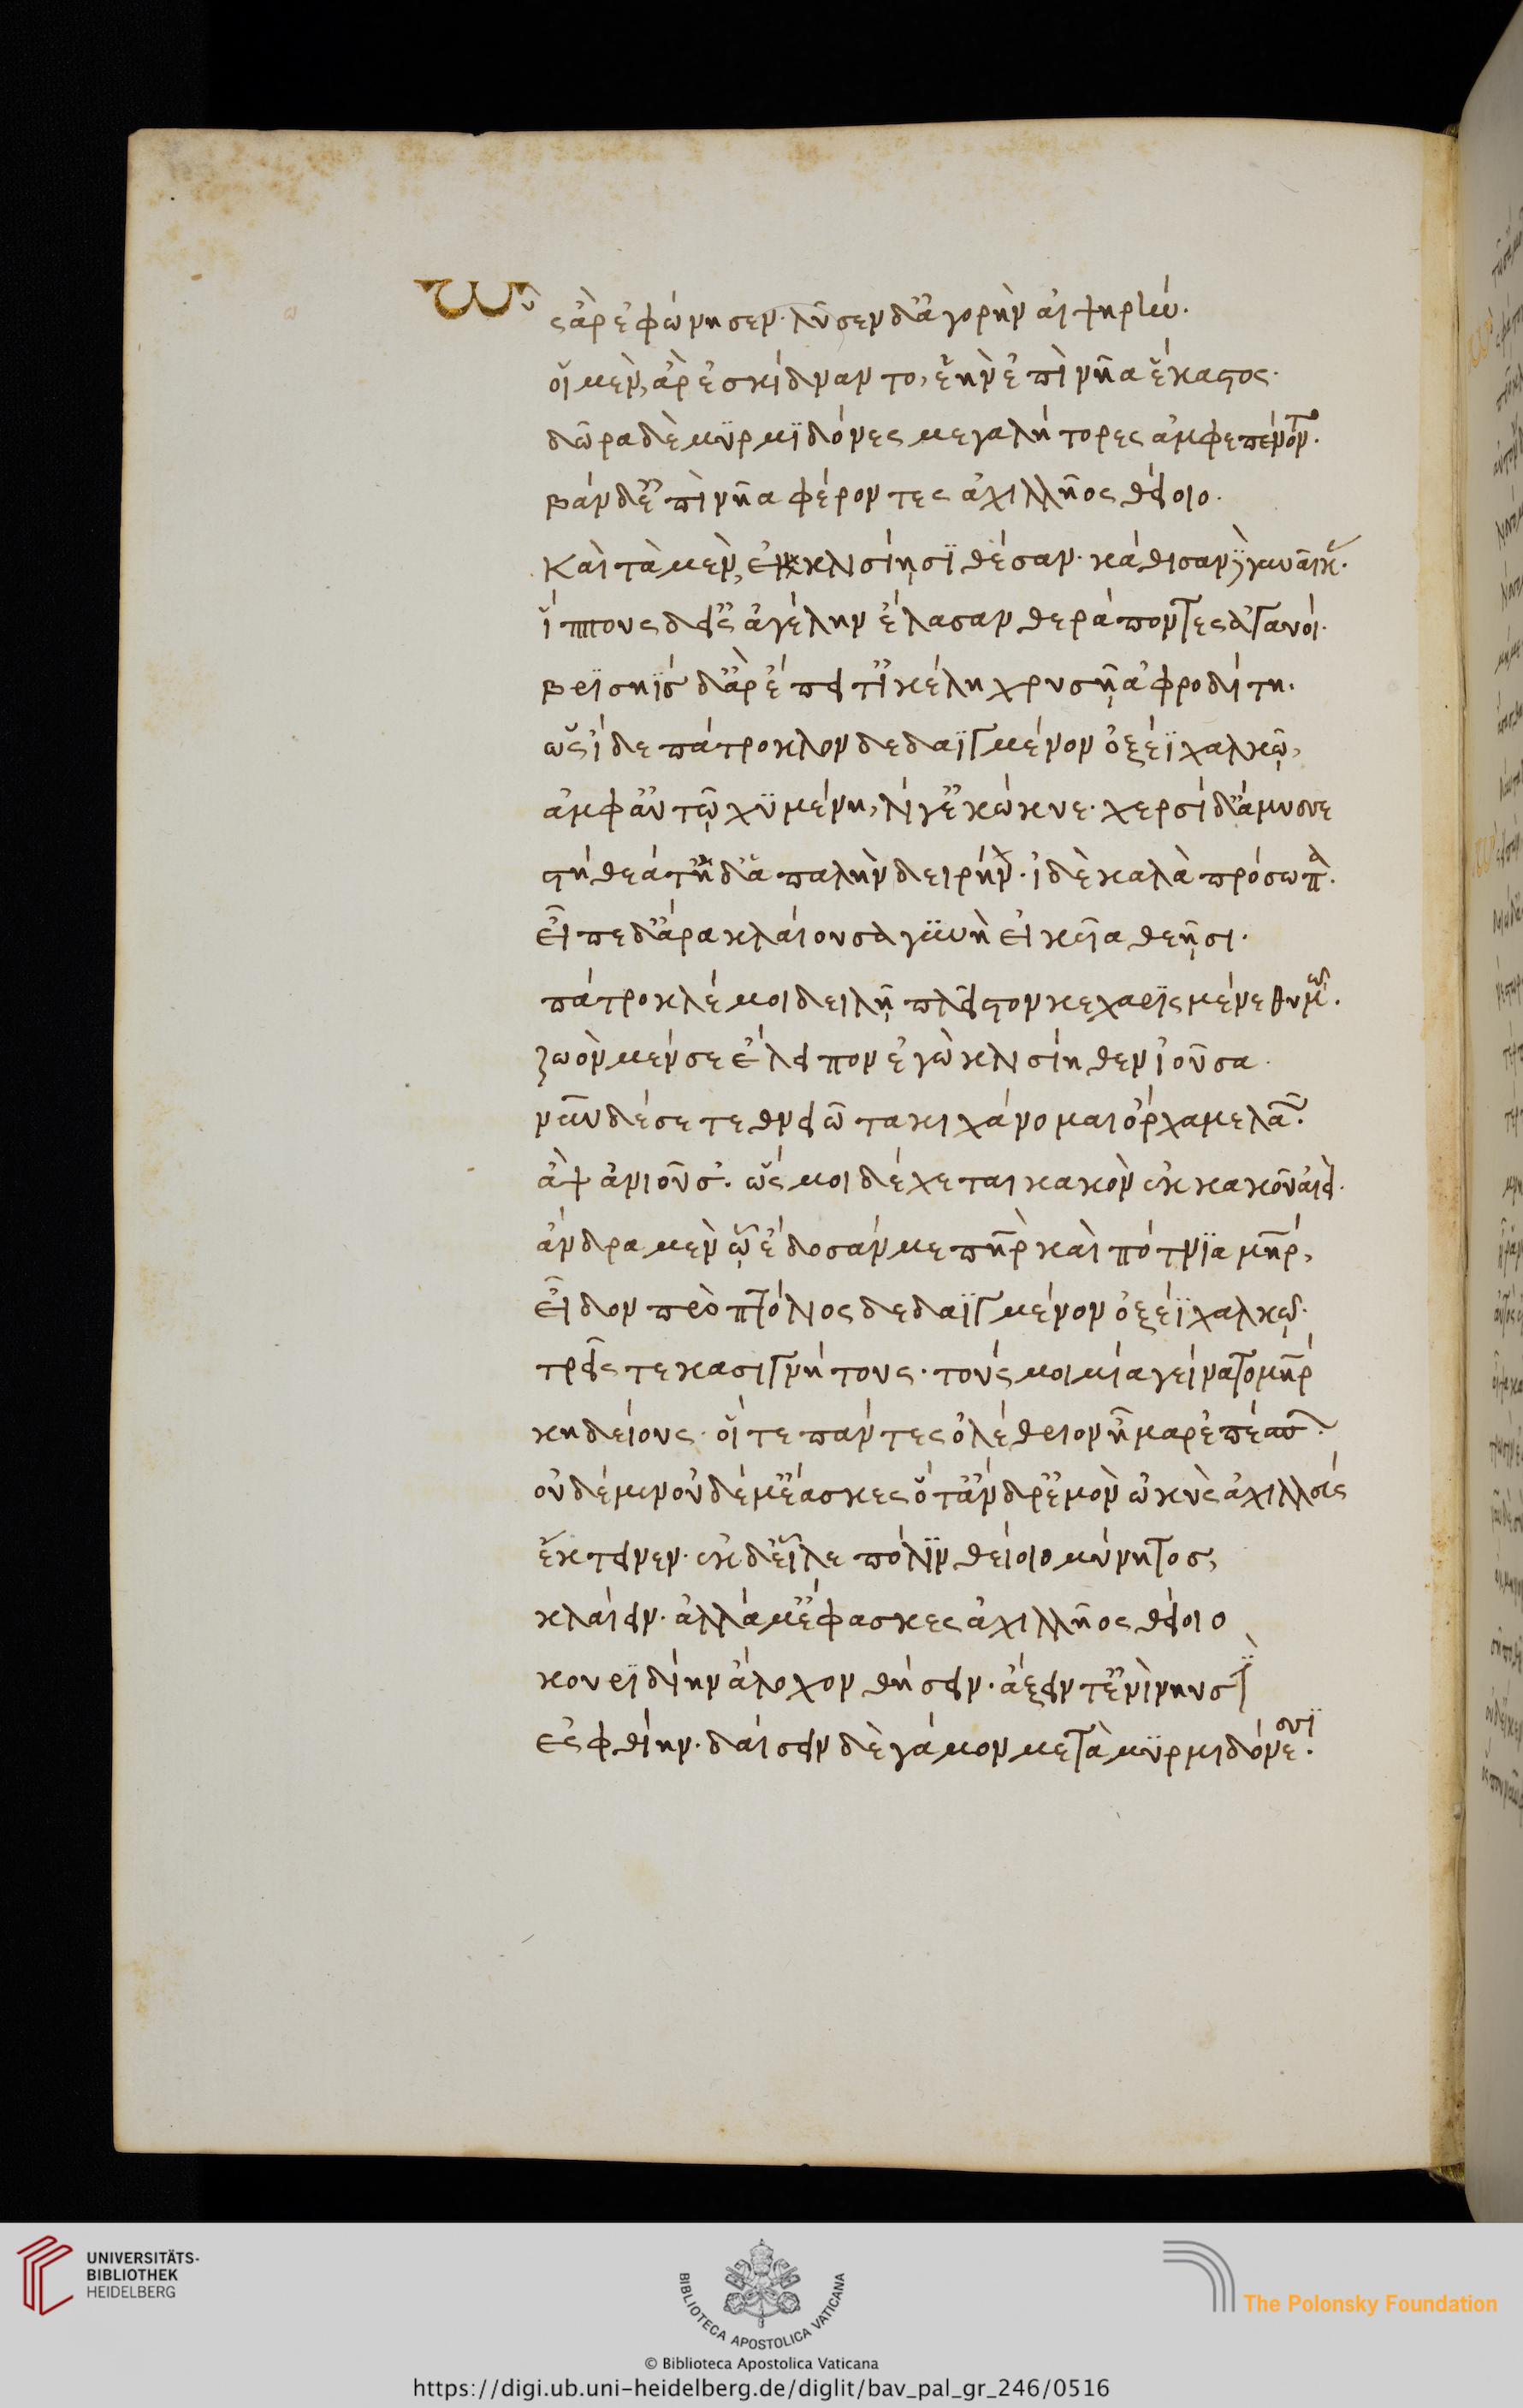 Ὣς ἂρ ἐφώνησεν. λῦσεν δ' ἀγορὴν αἰψηρήν.
οἳ μὲν, ἂρ ἐσκίδναντο, ἑὴν ἐπὶ νῆα ἕκαστος.
δῶρα δὲ μϋρμϊδόνες μεγαλήτορες ἀμφεπένοντο.
βὰν δ' ἐπὶ νῆα φέροντες ἀχιλλῆος θείοιο.
Καὶ τὰ μὲν, ἐν κλισίῃσϊ θέσαν. κάθισαν γυναῖκας.
ἵππους δ' εἰς ἀγέλην ἔλασαν θεράποντες ἀγαυοί.
βρϊσηῒς δ' ἂρ ἔπειτ' ἰκέλη χρυσῇ ἀφροδίτη.
ὡς ἴδε πάτροκλον δεδαϊγμένον ὀξέϊ χαλκῷ,
ἀμφ' αὐτῷ χϋμένη, λίγ' ἐκώκυε. χερσὶ δ' ἄμυσσε
στήθεά τ' ἠδ' ἁπαλὴν δειρήν. ἰδὲ καλὰ πρόσωπα.
εἶπε δ' ἄρα κλαίουσα γυνὴ εἰκυῖα θεῇσι.
πάτροκλέ μοι δειλῇ πλεῖστον κεχαρϊσμένε θυμῷ.
ζωὸν μέν σε ἔλειπον ἐγὼ κλισίηθεν ἰοῦσα.
νῦν δέ σε τεθνειῶτα κιχάνομαι ὄρχαμε λαῶν.
ἂψ ἀνιοῦσ'. ὥς μοι δέχεται κακὸν ἐκ κακοῦ αἰεί.
ἄνδρα μὲν ᾧ ἔδοσάν με πηρ καὶ πότνϊα μηρ,
εἶδον πρὸ πτόλιος δεδαϊγμένον ὀξέϊ χαλκῷ.
τρεῖς τε κασιγνήτους. τούς μοι μία γείνατο μηρ
κηδείους. οἵ τε πάντες ὀλέθριον ἦμαρ ἐπέσπον.
οὐδέ μὲν οὐδέ μ' ἔασκες ὅτ' ἄνδρ' ἐμὸν ὠκὺς ἀχιλλεύς
ἔκτεινεν. ἐκ δ' εἷλε πόλϊν θείοιο μύνητος,
κλαίειν. ἀλλά μ' ἔφασκες ἀχιλλῆος θείοιο
κουρϊδίην ἄλοχον θήσειν. ἄξειν τ' ἐνὶ νηυσὶ
ἐς φθίην. δαίσειν δὲ γάμον μετὰ μϋρμιδόνεσσϊ.
UNIVERSITÄTS-
BIBLIOTHEK
HEIDELBERG
BIBLIOTECA APOSTOLICA VATICANA
The Polonsky Foundation
© Biblioteca Apostolica Vaticana
https://digi.ub.uni-heidelberg.de/diglit/bav_pal_gr_246/0516